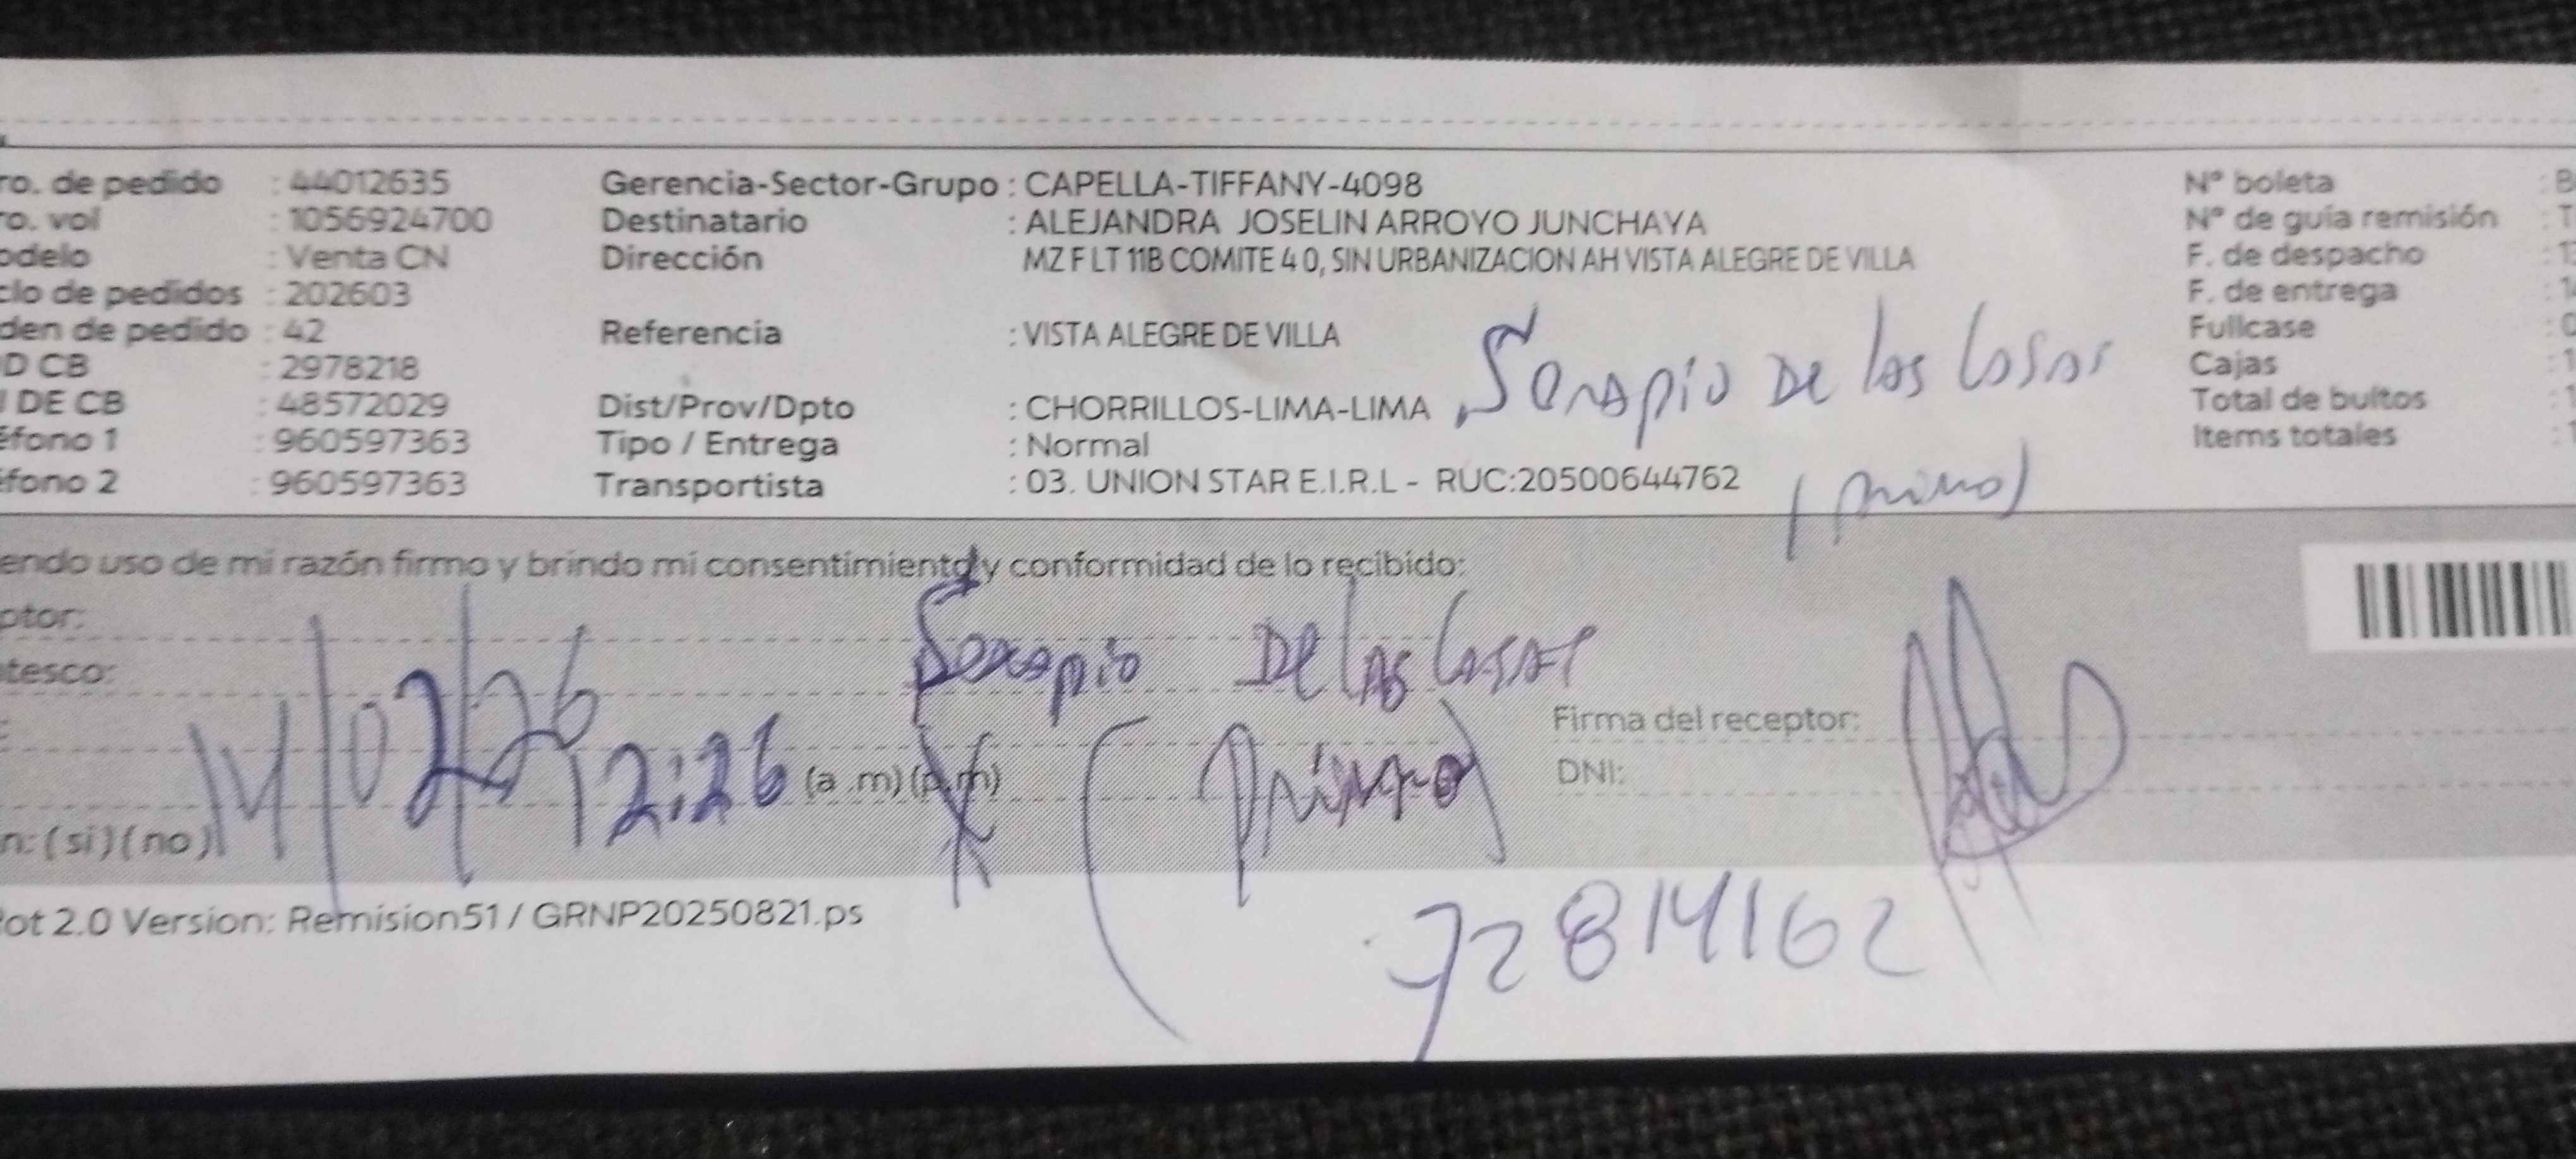 ro. de pedido : 44012635 Gerencia-Sector-Grupo : CAPELLA-TIFFANY-4098 N° boleta : B
ro. vol : 1056924700 Destinatario : ALEJANDRA JOSELIN ARROYO JUNCHAYA N° de guía remisión : T
odelo : Venta CN Dirección MZ F LT 11B COMITE 4 0, SIN URBANIZACION AH VISTA ALEGRE DE VILLA F. de despacho : 1
clo de pedidos : 202603 F. de entrega : 1
den de pedido : 42 Referencia : VISTA ALEGRE DE VILLA Fullcase : 0
D CB : 2978218 Cajas : 1
I DE CB : 48572029 Dist/Prov/Dpto : CHORRILLOS-LIMA-LIMA Serapio De las Casas Total de bultos : 1
éfono 1 : 960597363 Tipo / Entrega : Normal Items totales : 1
éfono 2 : 960597363 Transportista : 03. UNION STAR E.I.R.L - RUC:20500644762 (primo)
endo uso de mi razón firmo y brindo mi consentimiento y conformidad de lo recibido:
ptor: Serapio De las Casas
tesco:
14/02/26 12:26 (a .m) (p.m) (Primo) Firma del receptor:
DNI:
n: ( si ) ( no )
72814162
ot 2.0 Version: Remision51 / GRNP20250821.ps